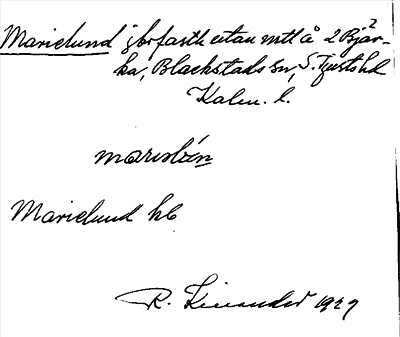 Marielund jordfasth utan mtl å 2 Bjär-
ka, Blackstads sn, S. Tjusts hd
Kalm. l.
Marielund hb
R. Kinander 1929